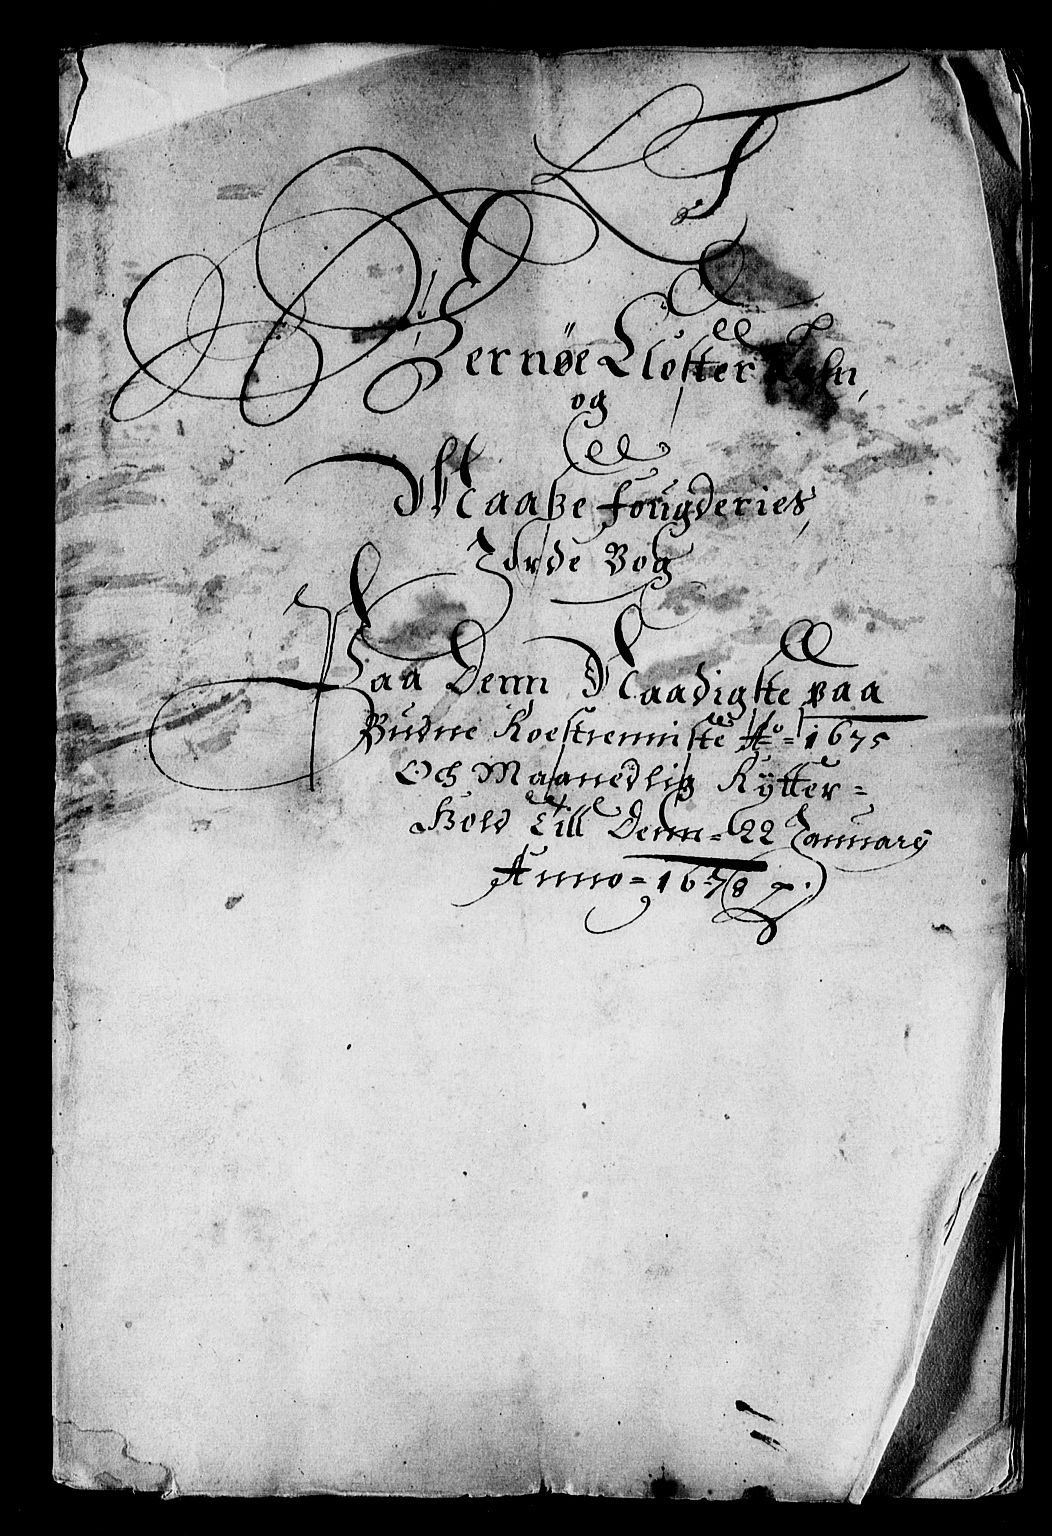 Bernøe Closter Lehn,
og
Maaße fougderies,
Jorde Bog
Paa Denn Naadigste paa
Budne Koestienniste Aᵒ= 1675
Och Maanedlig Rÿtter=
Hold Till Denn= 22 Januarÿ
Anno= 1678